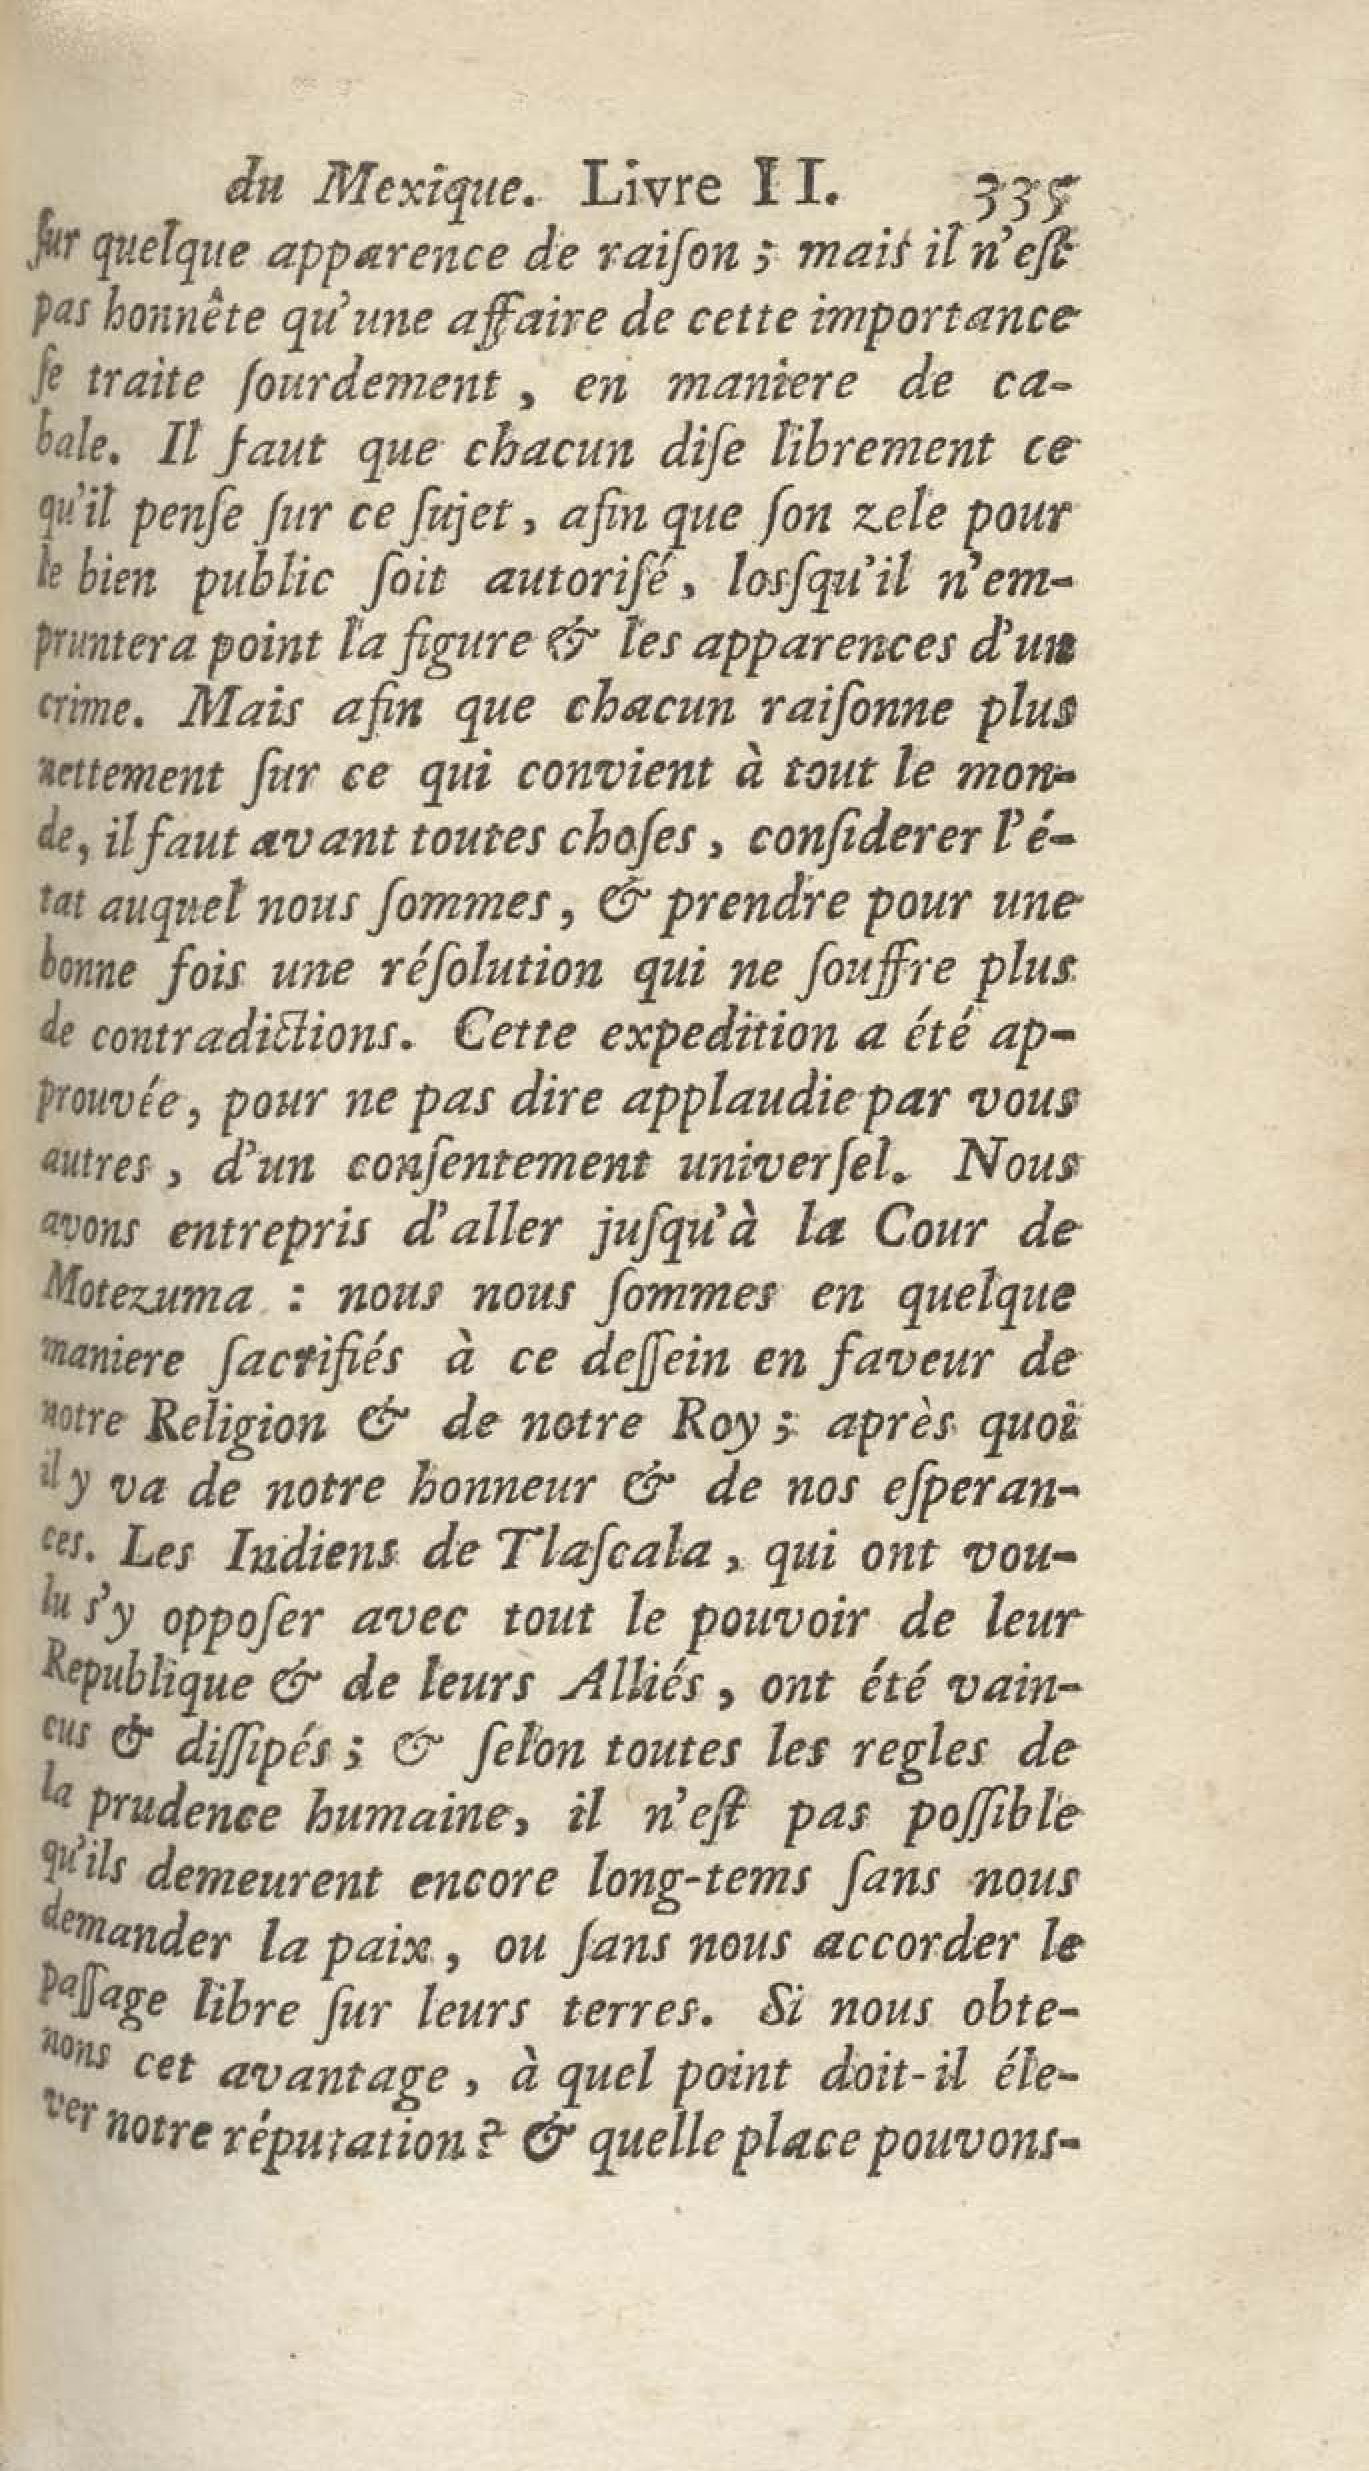 du Mexique. Livre II. 335
ſur quelque apparence de raiſon ; mais il n'eſt
pas honnête qu'une affaire de cette importance
ſe traite ſourdement, en maniere de ca-
bale. Il faut que chacun diſe librement ce
qu'il penſe ſur ce ſujet, afin que ſon zele pour
le bien public ſoit autoriſé, losſqu'il n'em-
pruntera point la figure & les apparences d'un
crime. Mais afin que chacun raiſonne plus
nettement ſur ce qui convient à tout le mon-
de, il faut avant toutes choſes, conſiderer l'é-
tat auquel nous ſommes, & prendre pour une
bonne fois une réſolution qui ne ſouffre plus
de contradictions. Cette expedition a été ap-
prouvée, pour ne pas dire applaudie par vous
autres, d'un conſentement univerſel. Nous
avons entrepris d'aller juſqu'à la Cour de
Motezuma : nous nous ſommes en quelque
maniere ſacrifiés à ce deſſein en faveur de
notre Religion & de notre Roy ; après quoi
il y va de notre honneur & de nos eſperan-
ces. Les Indiens de Tlaſcala, qui ont vou-
lu s'y oppoſer avec tout le pouvoir de leur
Republique & de leurs Alliés, ont été vain-
cus & diſſipés ; & ſelon toutes les regles de
la prudence humaine, il n'eſt pas poſſible
qu'ils demeurent encore long-tems ſans nous
demander la paix, ou ſans nous accorder le
paſſage libre ſur leurs terres. Si nous obte-
nons cet avantage, à quel point doit-il éle-
ver notre réputation ? & quelle place pouvons-